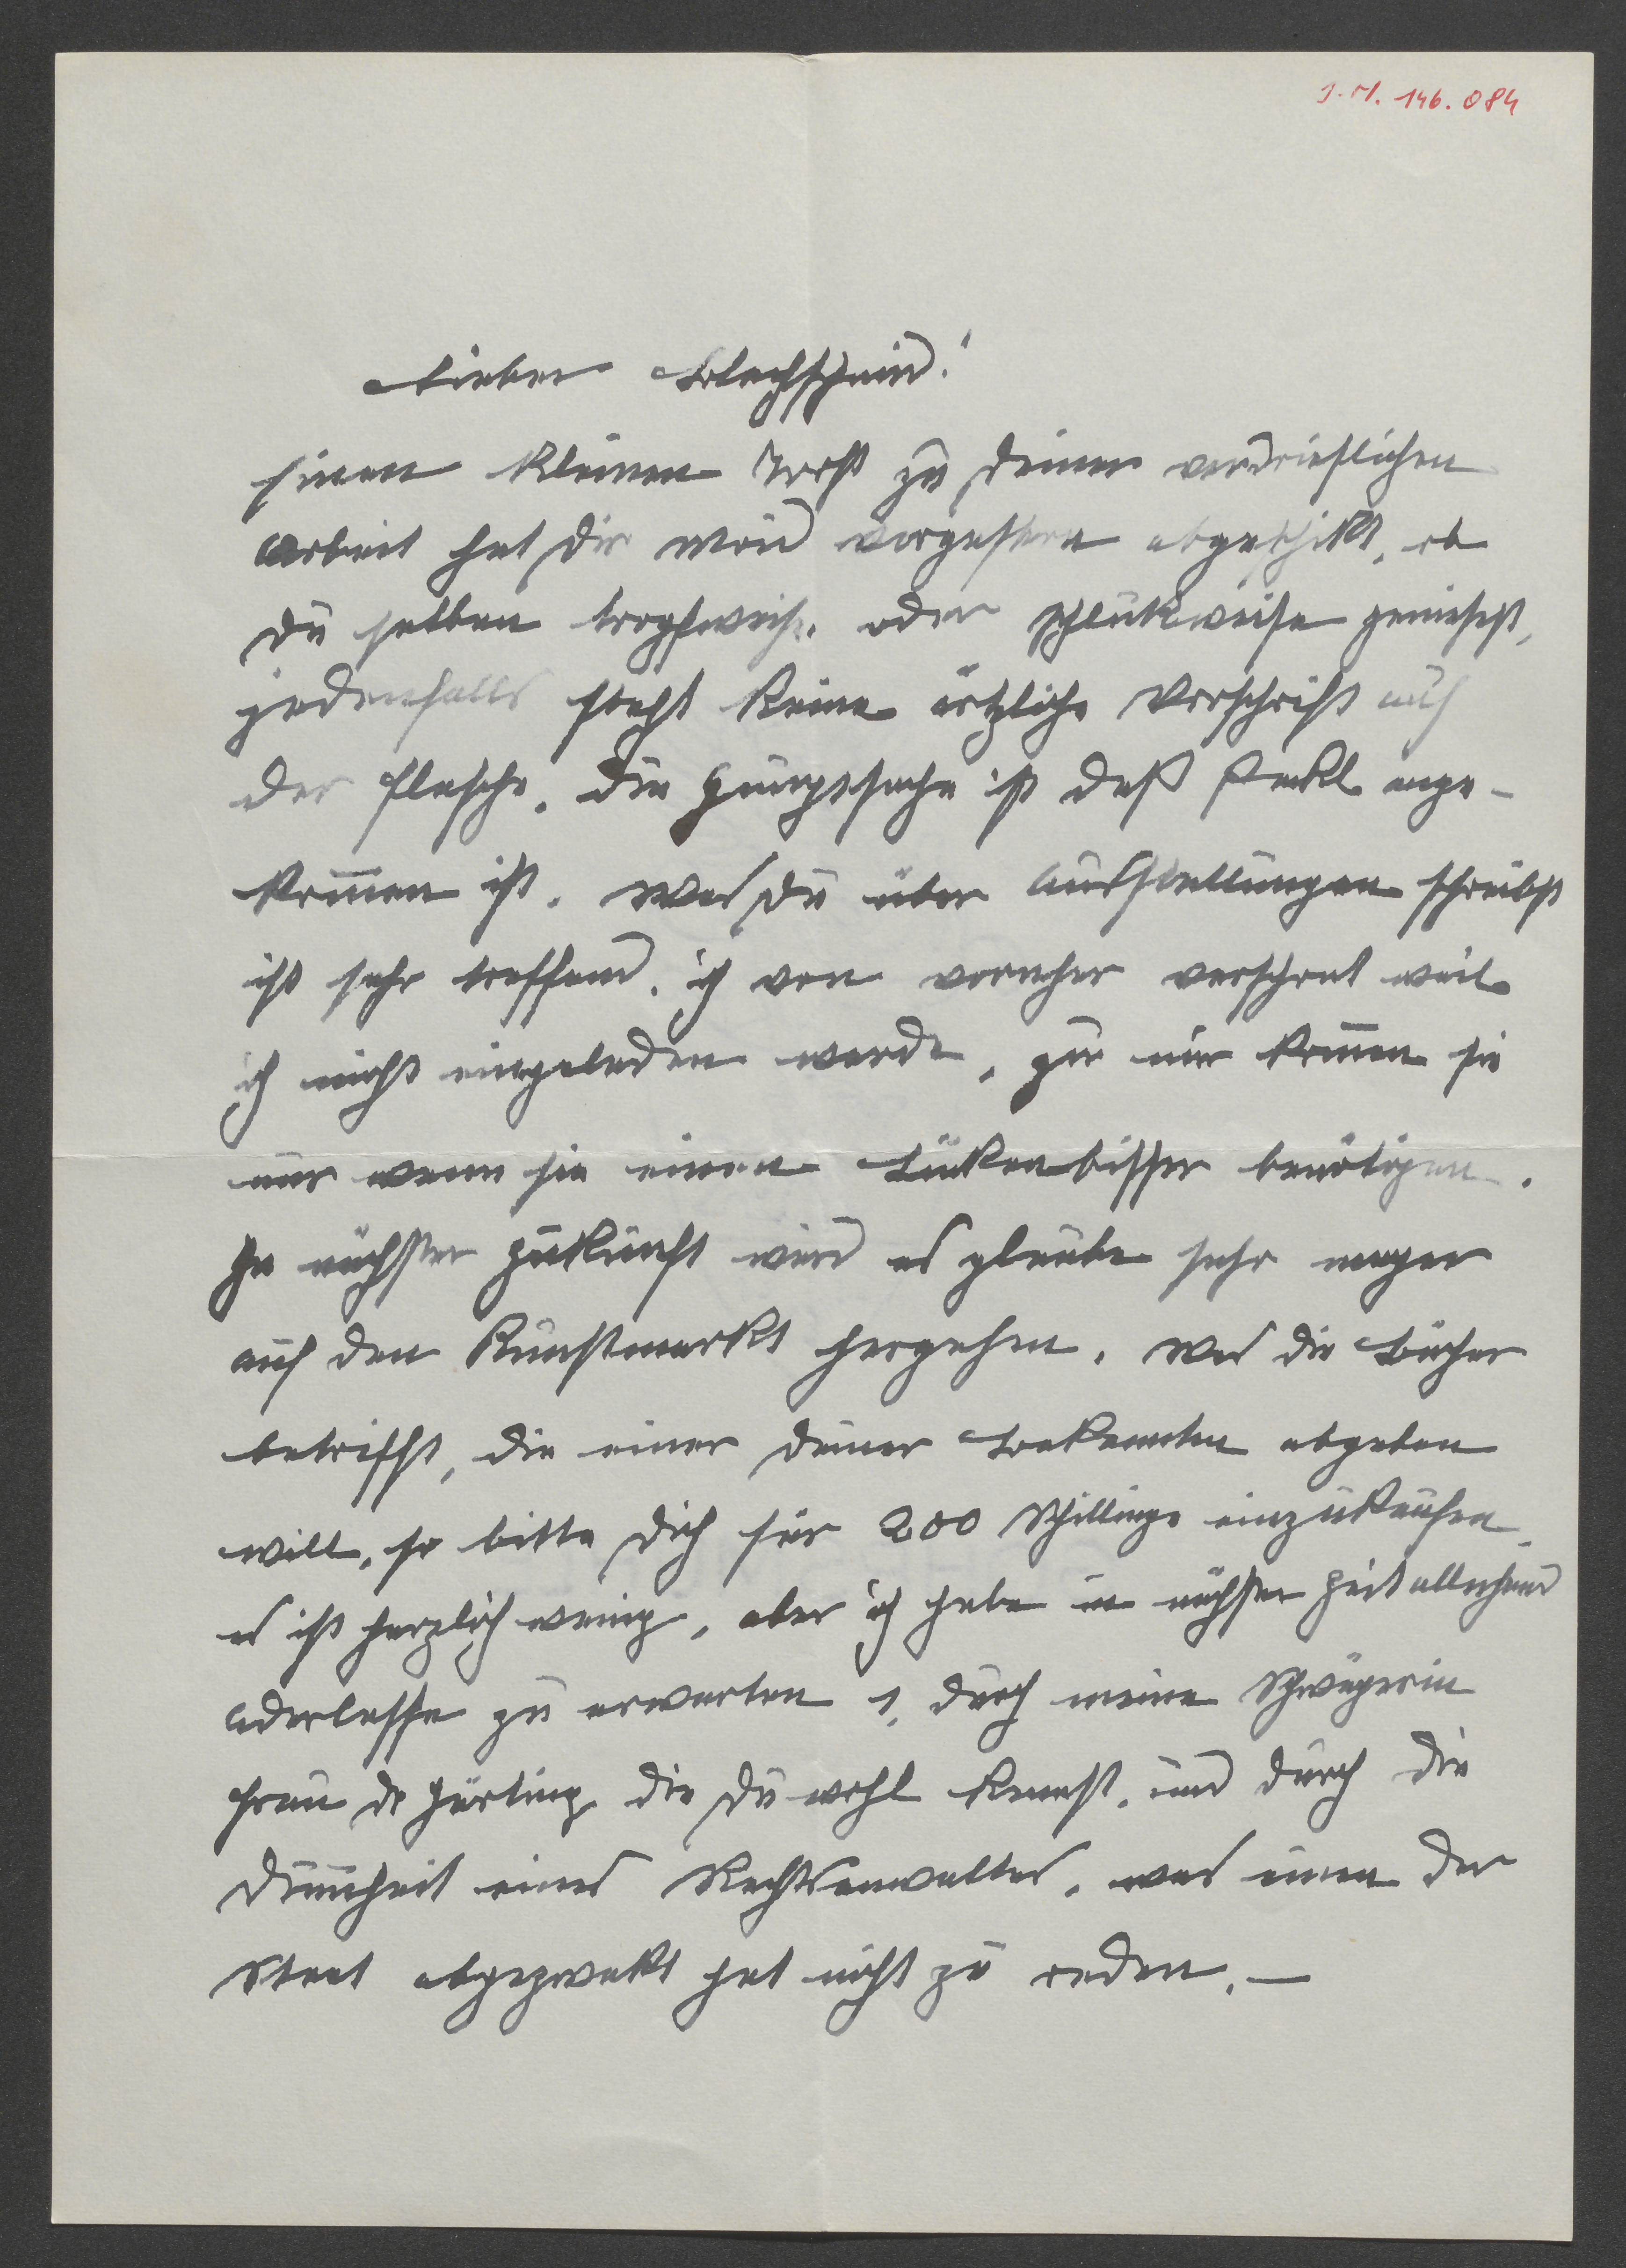 J. N. 146.084
Lieber Blechschmid!
Einen kleinen Trost zu deiner verdrieslichen
Arbeit hat dir mein vorgestern abgeschikt, ob
du selben tropfweise oder schlukweise geniesest,
jedenfalls steht keine ärtzliche Vorschrift auf
der Flasche. Die Hauptsache ist daß Pakl ange-
kom̄en ist. Was du über Ausstellungen schreibst
ist sehr treffend, ich von vorneher verschont weil
ich nicht eingeladen werde, zu mir kom̄en sie
nur wenn sie einen Lükenbüsser benötigen.
In nächster Zukunft wird es glaube sehr mager
auf den Kunstmarkt hergehen. Was die Bücher
betrifft, die einer deiner Bekannten abgeben
will, so bitte dich für 200 Schillinge einzukaufen,
es ist herzlich wenig, aber ich habe in nächster Zeit allerhand
Aderlasse zu erwarten 1, durch meine Schwägerin
Frau de die du wohl kennst, und durch die
Dum̄heit eines Rechtsanwaltes, was einen der
Staat abgezwakt hat nicht zu reden. —